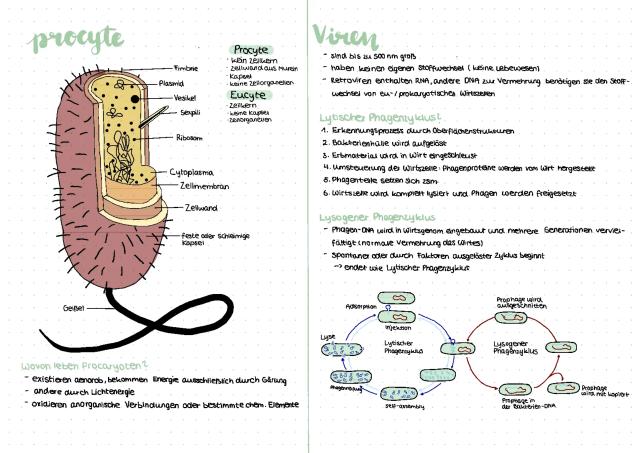 procyte
Fimbrie
Plasmid
Vesikel
Sexpili
Ribosom
Cytoplasma
Zellmembran
Zellwand
feste oder schleimige
Kapsel
Geißel
Procyte
- kein Zellkern
- Zellwand aus Murein
- Kapsel
- keine Zellorganellen
Eucyte
- Zellkern
- keine Kapsel
- Zellorganellen
Wovon leben Procaryoten?
- existieren aenorob, bekommen Energie ausschließlich durch Gärung
- andere durch Lichtenergie
- oxidieren anorganische Verbindungen oder bestimmte chem. Elemente
Viren
- sind bis zu 500 nm groß
- haben keinen eigenen Stoffwechsel (keine Lebewesen)
- Retroviren enthalten RNA, andere DNA zur Vermehrung benötigen sie den Stoff-
wechsel von eu-/prokaryotischen Wirtszellen
Lytischer Phagenzyklus?
1. Erkennungsprozess durch Oberflächenstrukturen
2. Bakterienhülle wird aufgelöst
3. Erbmaterial wird in Wirt eingeschleust
4. Umsteuerung der Wirtzelle: Phagenproteine werden vom Wirt hergestellt
5. Phagenteile setzen sich zsm.
6. Wirtszelle wird komplett lysiert und Phagen werden freigesetzt
Lysogener Phagenzyklus
- Phagen-DNA wird in Wirtsgenom eingebaut und mehrere Generationen verviel-
fältigt (normale Vermehrung des Wirtes)
- Spontaner oder durch Faktoren ausgelöster Zyklus beginnt
→ endet wie Lytischer Phagenzyklus
Adsorption
Injektion
Lyse
Lytischer
Phagenzyklus
Phagenreifung
Self-assembly
Prophage wird
ausgeschnitten
Lysogener
Phagenzyklus
Prophage in
der Bakterien-DNA
Prophage
wird mit kopiert